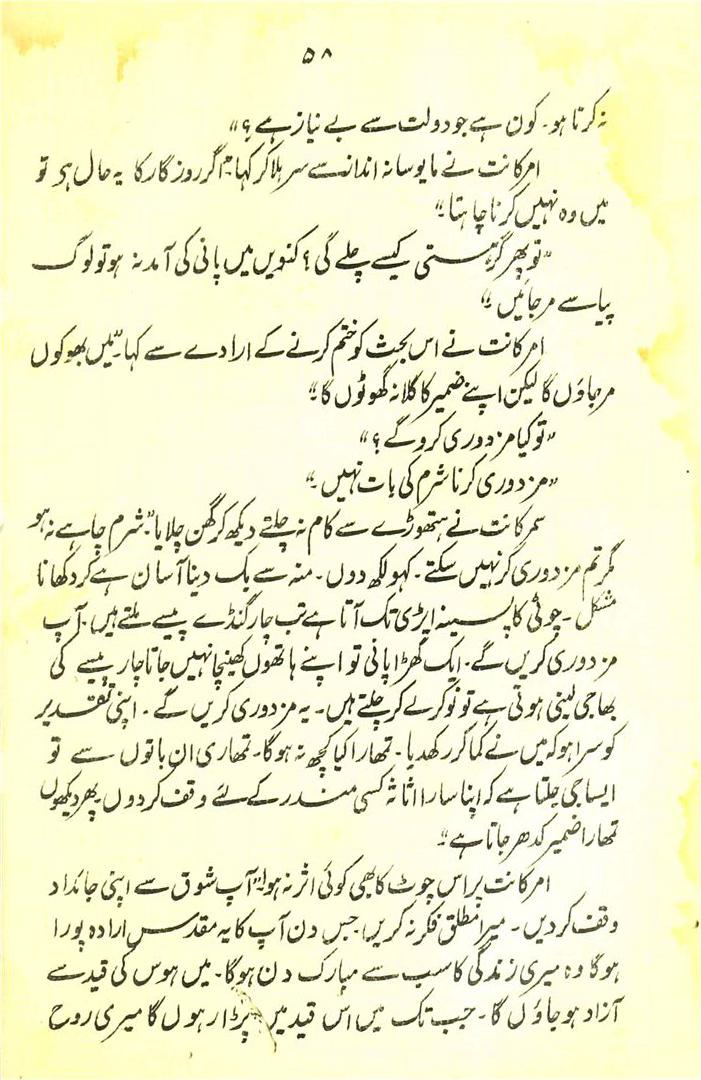 ۵۸
نہ کرتا ہو۔ کون ہے جو دولت سے بے نیاز ہے؟"
امرکانت نے مایوسانہ انداز سے سر ہلا کر کہا "اگر روزگار کا یہ حال ہو تو
میں وہ نہیں کرنا چاہتا۔"
"تو پھر گرہستی کیسے چلے گی؟ کنویں میں پانی کی آمد نہ ہو تو لوگ
پیاسے مر جائیں۔"
امرکانت نے اس بحث کو ختم کرنے کے ارادے سے کہا۔ "میں بھوکوں
مر جاؤں گا لیکن اپنے ضمیر کا گلا نہ گھوٹوں گا۔"
"تو کیا مزدوری کرو گے؟"
"مزدوری کرنا شرم کی بات نہیں۔"
سمرکانت نے ہتھوڑے سے کام نہ چلتے دیکھ کر گھن چلایا "شرم چاہے نہ ہو
مگر تم مزدوری کر نہیں سکتے۔ کہو لکھ دوں۔ منہ سے بک دینا آسان ہے کر دکھانا
مشکل۔ چوٹی کا پسینہ ایڑی تک آتا ہے تب چار گنڈے پیسے ملتے ہیں۔ آپ
مزدوری کریں گے۔ ایک گھڑا پانی تو اپنے ہاتھوں کھینچا نہیں جاتا چار پیسے کی
بھاجی لینی ہوتی ہے تو نوکر لے کر چلتے ہیں۔ یہ مزدوری کریں گے۔ اپنی تقدیر
کو سراہو کہ میں نے کما کر رکھ دیا۔ تمھارا کیا کچھ نہ ہوگا۔ تمھاری ان باتوں سے تو
ایسا جی جلتا ہے کہ اپنا سارا اثاثہ کسی مندر کے لئے وقف کردوں پھر دیکھوں
تمھارا ضمیر کدھر جاتا ہے۔"
امرکانت پر اس چوٹ کا بھی کوئی اثر نہ ہوا "آپ شوق سے اپنی جائداد
وقف کردیں۔ میرا مطلق فکر نہ کریں۔ جس دن آپ کا یہ مقدس ارادہ پورا
ہوگا وہ میری زندگی کا سب سے مبارک دن ہوگا۔ میں ہوس کی قید سے
آزاد ہو جاؤں گا۔ جب تک میں اس قید میں پڑا رہوں گا میری روح